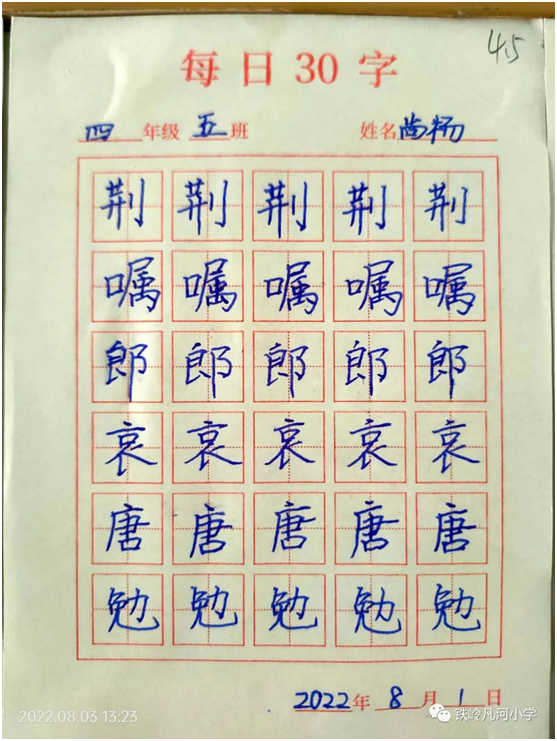 45
每日30字
四年级 五班 姓名尚杨
荆荆荆荆荆
嘱嘱嘱嘱嘱
郎郎郎郎郎
哀哀哀哀哀
唐唐唐唐唐
勉勉勉勉勉
2022年 8月 1日
2022.08.03 13:23
铁岭凡河小学